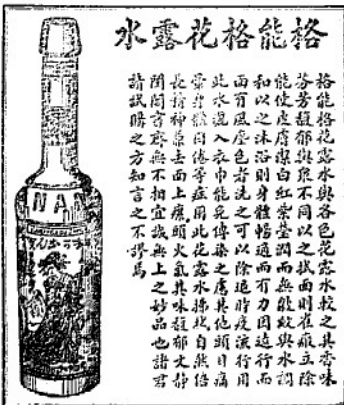 格能格花露水
格能格花露水與各色花露水較之其香味
芬芳馥郁與衆不同以之拭面則雀瘢立除
能使皮膚潔白紅瑩潤而無皺紋與水調
和以之沐浴則身體暢適而有力因遠行而
面有風塵色者洗之可以除退時疫流行用
此水混入衣巾能免傳染之虞其他頭目痛
暈身體困倦等症用此花露水擦抹自然倍
長精神兼去面上頭火氣其味馥郁文静
閨閣齋無不相宜誠無上之妙品也諸君
請試購之方知言之不謬焉
NAN